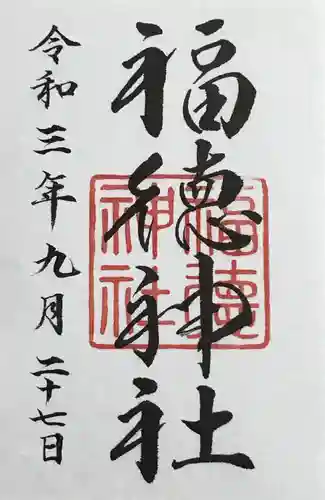 福徳神社
令和三年九月二十七日
福徳神社